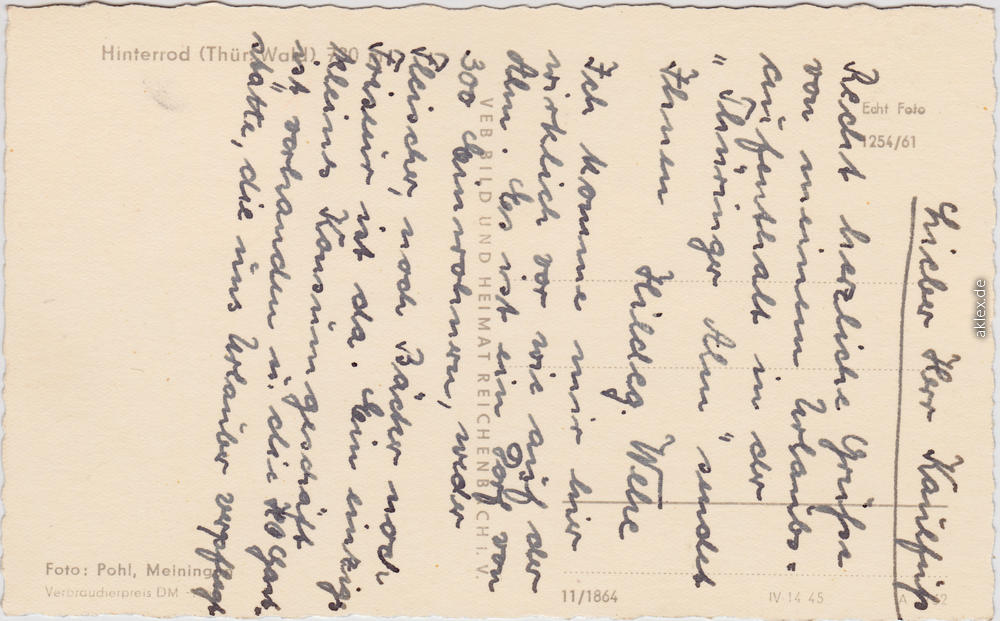 Lieber Herr Kaulfuß
Recht herzliche Grüße
von meinem Urlaubs-
aufenthalt in der
"Thüringer Alm" sendet
Ihnen Hildeg. Wehe
Ich komme mir hier
wirklich vor wie auf der
Alm. Es ist ein Dorf von
300 Einwohnern, weder
Fleischer, noch Bäcker noch
Friseur ist da. Ein einzige
kleines Konsumgeschäft
ist vorhanden u. die HO Gast-
stätte, die uns Urlauber verpflegt
Hinterrod (Thür. Wald) 780
Echt Foto
1254/61
VEB BILD UND HEIMAT REICHENBACH i. V.
Foto: Pohl, Meining
Verbraucherpreis DM
11/1864
IV-14-45
A
aklex.de